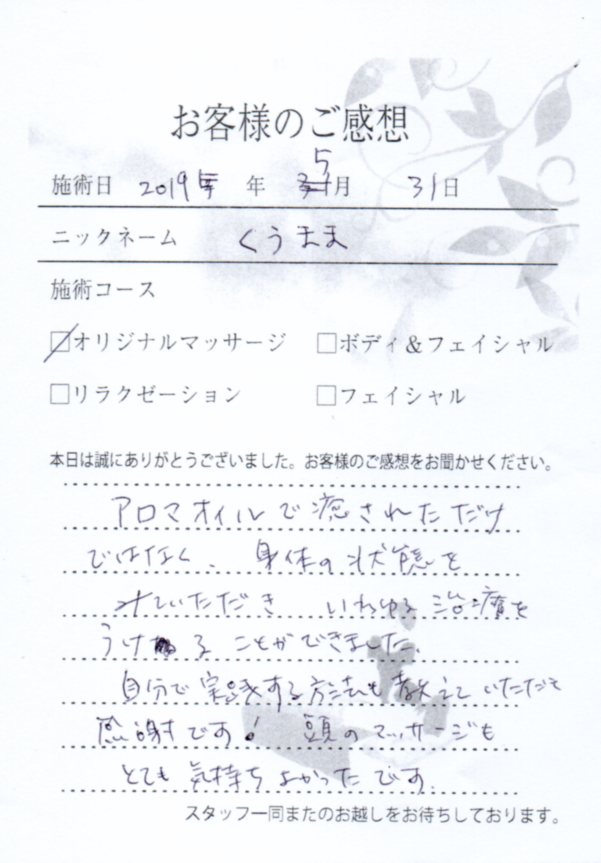 お客様のご感想
施術日 2019年 年 5月 31日
ニックネーム くうまま
施術コース
☑オリジナルマッサージ □ボディ&フェイシャル
□リラクゼーション □フェイシャル
本日は誠にありがとうございました。お客様のご感想をお聞かせください。
アロマオイルで癒されただけ
ではなく、身体の状態を
みていただき いわゆる治療を
うけることができました。
自分で実践する方法も教えていただき
感謝です! 頭のマッサージも
とても気持ちよかったです。
スタッフ一同またのお越しをお待ちしております。